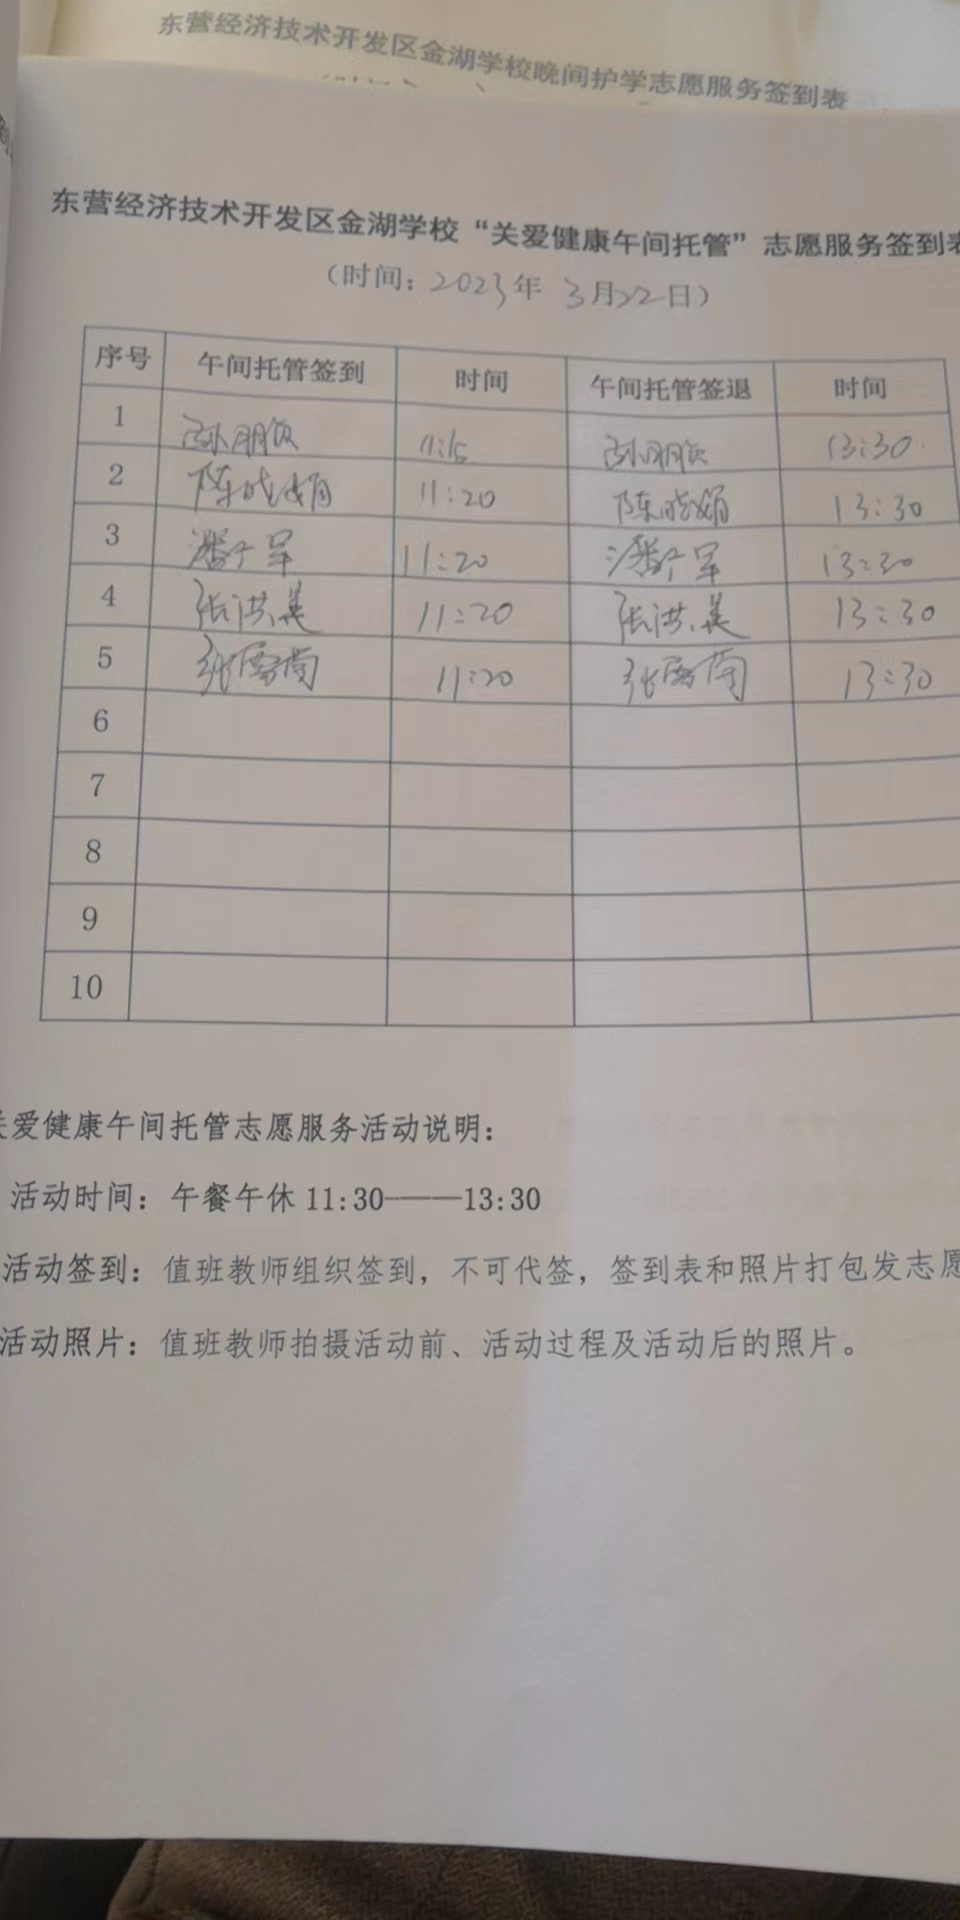 东营经济技术开发区金湖学校晚间护学志愿服务签到表
东营经济技术开发区金湖学校“关爱健康午间托管”志愿服务签到表
（时间：2023年 3月22日）
序号 午间托管签到 时间 午间托管签退 时间
1 11:15 13:30
2 陈晓娟 11:20 陈晓娟 13:30
3 11:20 13:30
4 张洪美 11:20 张洪美 13:30
5 11:20 13:30
6
7
8
9
10
关爱健康午间托管志愿服务活动说明：
活动时间：午餐午休 11:30——13:30
活动签到：值班教师组织签到，不可代签，签到表和照片打包发志愿
活动照片：值班教师拍摄活动前、活动过程及活动后的照片。